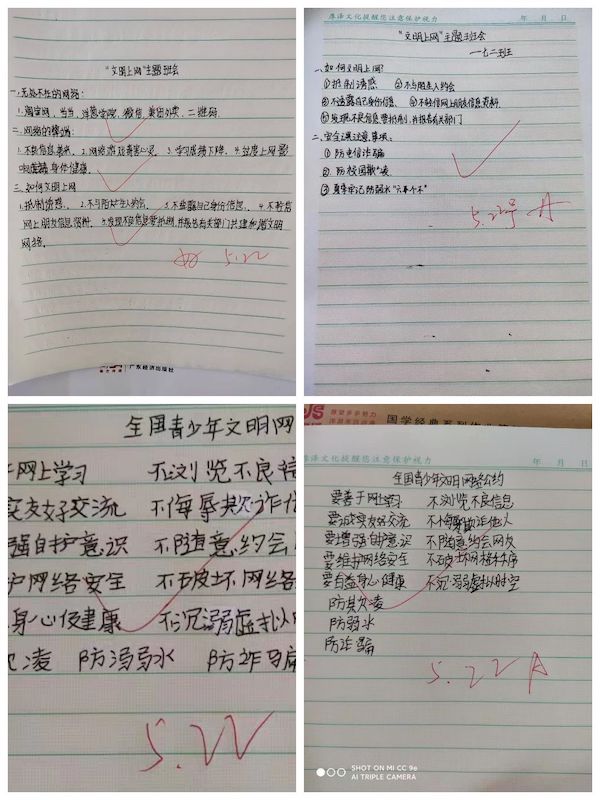 "文明上网"主题班会
一.无处不在的网络:
1.淘宝网,当当,洋葱学院,微信,美团外卖,二维码.
二.网络的弊端:
1.不良信息袭来. 2.网络游戏毒害心灵. 3.学习成绩下降. 4.过度上网影
响身体健康.
三.如何文明上网
1.抵制诱惑. 2.不与陌生人约会. 3.不透露自己身份信息. 4.不轻信
网上朋友信息资料. 5.发现不良信息要抵制,并报告有关部门共建和谐文明
网络.
5.22
广东经济出版社
泽文化提醒您注意保护视力
年 月 日
"文明上网"主题班会
一七二班
一、如何文明上网?
①抵制诱惑 ②不与陌生人约会
③不透露自己身份信息. ④不轻信网上朋友信息资料.
⑤发现不良信息要抵制,并报告有关部门
二、安全课注意事项:
① 防电信诈骗
② 防校园欺凌
③ 牢记防溺水"六个不"
5.22号 A
全国青少年文明网
网上学习 不浏览不良信
实友好交流 不侮辱欺诈他
强自护意识 不随意约会
护网络安全 不破坏网络
身心健康 不沉溺虚拟时
凌 防溺水 防诈骗
5.22
国学经典系列作业
泽文化提醒您注意保护视力
年 月 日
全国青少年文明网络公约
要善于网上学习 不浏览不良信息
要诚实友好交流 不侮辱欺诈他人
要增强自护意识 不随意约会网友
要维护网络安全 不破坏网络秩序
要有益身心健康 不沉溺虚拟时空
防欺凌
防溺水
防诈骗
5.22 A
SHOT ON MI CC 9e
AI TRIPLE CAMERA